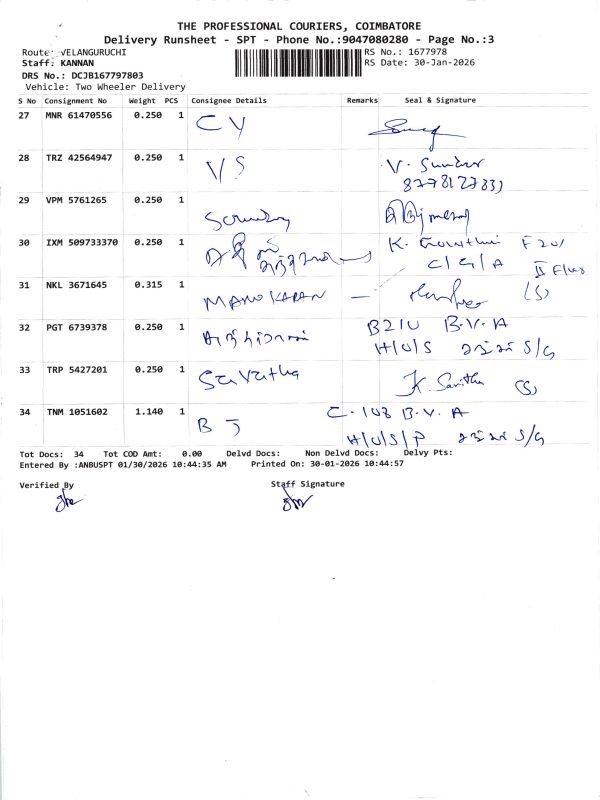 THE PROFESSIONAL COURIERS, COIMBATORE
Delivery Runsheet - SPT - Phone No.:9047080280 - Page No.:3
Route: VELANGURUCHI
RS No.: 1677978
Staff: KANNAN
RS Date: 30-Jan-2026
DRS No.: DCJB167797803
Vehicle: Two Wheeler Delivery
S No Consignment No Weight PCS Consignee Details Remarks Seal & Signature
27 MNR 61470556 0.250 1 CV
28 TRZ 42564947 0.250 1 VS V. Sundar
29 VPM 5761265 0.250 1
30 IXM 509733370 0.250 1 K. F201
C/G/A II Floor
31 NKL 3671645 0.315 1 MANOKARAN — (S)
32 PGT 6739378 0.250 1 B210 B.V.A
H/O/S S/G
33 TRP 5427201 0.250 1 K. Savitha (S)
34 TNM 1051602 1.140 1 BJ C-108 B.V.A
H/O/S/P S/G
Tot Docs: 34 Tot COD Amt: 0.00 Delvd Docs: Non Delvd Docs: Delvy Pts:
Entered By :ANBUSPT 01/30/2026 10:44:35 AM Printed On: 30-01-2026 10:44:57
Verified By Staff Signature